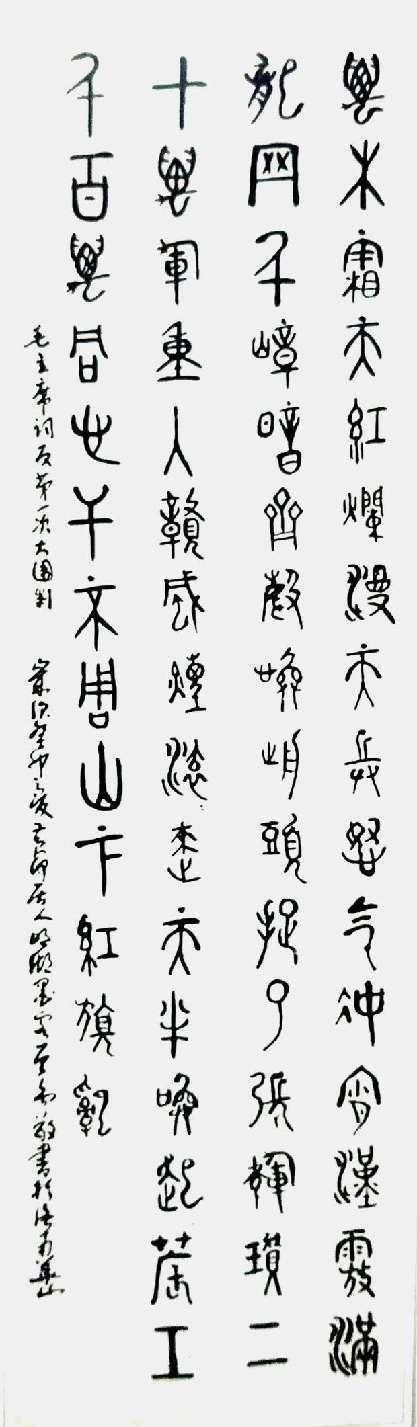 萬木霜天紅爛漫天兵怒气沖霄漢霧滿
龍岡千嶂暗齊聲喚前頭捉了張輝瓚二
十萬軍重入贛風煙滾〻來天半喚起農工
千百萬同心干不周山下紅旗亂
毛主席詞反第一次大圍剿 歲次 敬書於